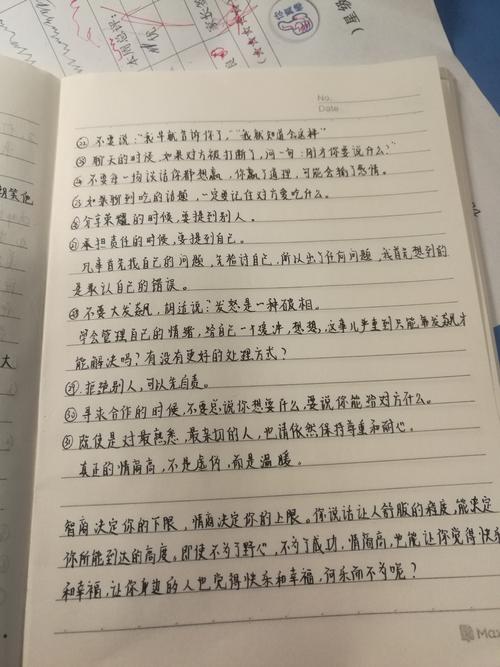 No.
Date
㉒ 不要说:“我早就告诉你了,”“我就知道会这样”
㉓ 聊天的时候,如果对方被打断了,问一句:刚才你要说什么?”
㉔ 不要每一场谈话你都想赢,你赢了道理,可能会输了感情。
㉕ 如果聊到吃的话题,一定要记住对方爱吃什么。
㉖ 分享荣耀的时候,要提到别人。
㉗ 承担责任的时候,要提到自己。
凡事首先找自己的问题,先检讨自己,所以出了任何问题,我首先想到的
是承认自己的错误。
㉘ 不要大发飙,胡适说:发怒是一种破相。
学会管理自己的情绪,给自己一个缓冲,想想,这事儿严重到只能靠发飙才
能解决吗?有没有更好的处理方式?
㉙ 拒绝别人,可以先自责。
㉚ 寻求合作的时候,不要总说你想要什么,要说你能给对方什么。
㉛ 既使是对最熟悉,最亲切的人,也请依然保持尊重和耐心。
真正的情商高,不是虚伪,而是温暖。
智商决定你的下限,情商决定你的上限。你说话让人舒服的程度,能决定
你所能到达的高度。即使不为了野心,不为了成功,情商高,也能让你觉得快乐
和幸福,让你身边的人也觉得快乐和幸福,何乐而不为呢?